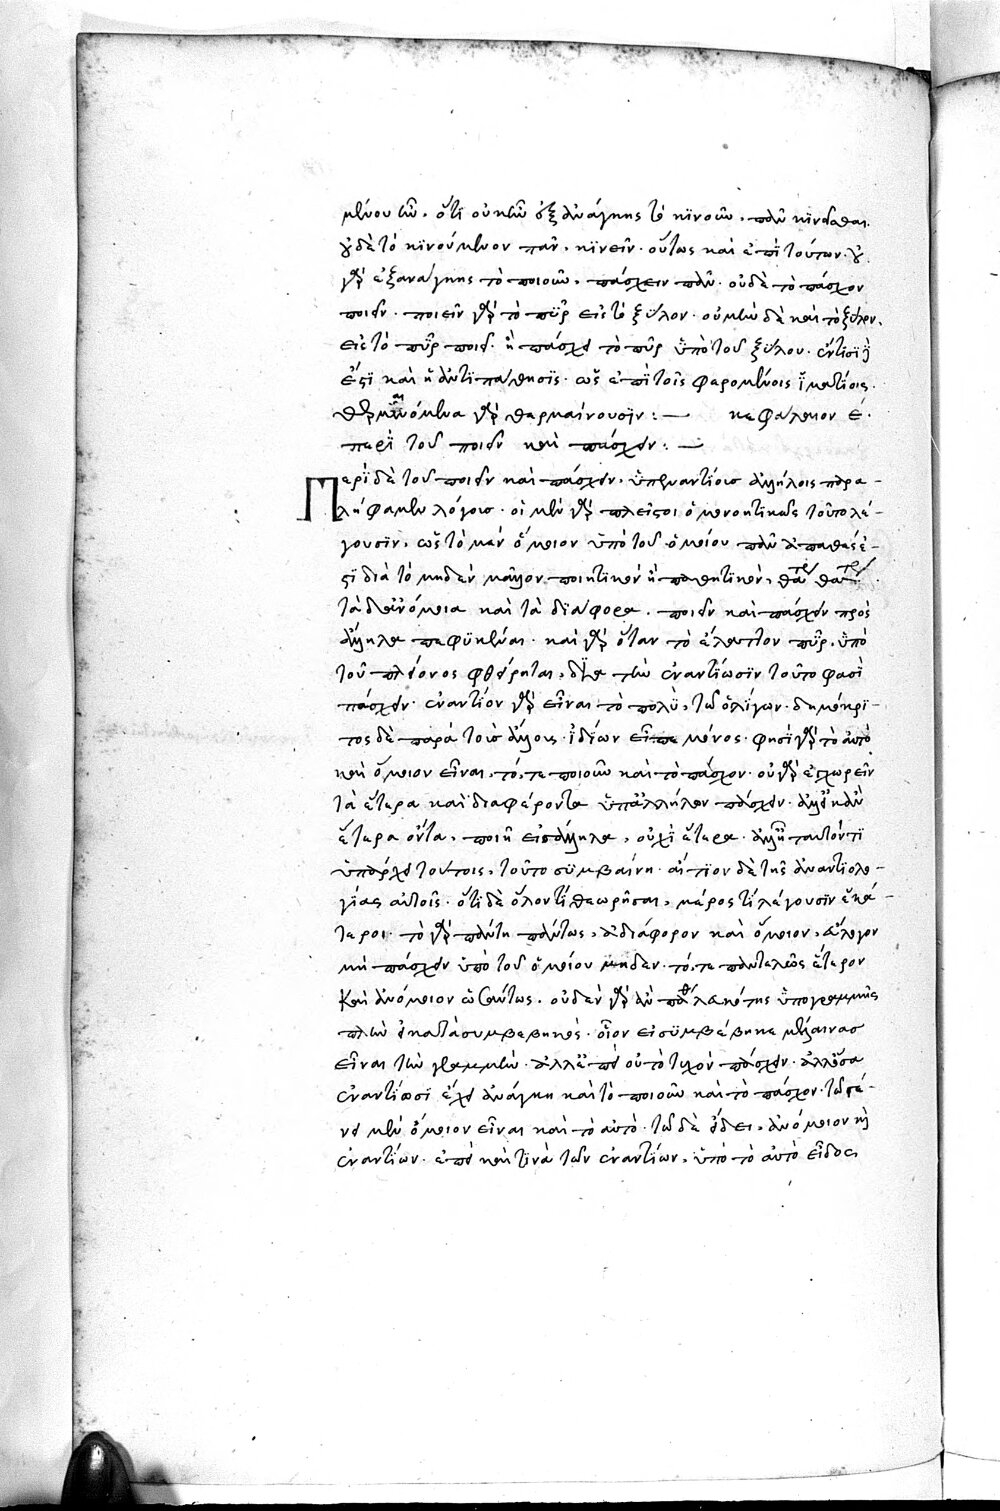 μένου ἦν. ὅτι οὐκ ἦν ἐξ ἀνάγκης τὸ κινοῦν, πᾶν κινεῖσθαι.
οὐδὲ τὸ κινούμενον πᾶν, κινεῖν. οὕτως καὶ ἐπὶ τούτων. οὐ
γὰρ ἐξανάγκης τὸ ποιοῦν, πάσχειν πᾶν. οὐδὲ τὸ πάσχον
ποιεῖν. ποιεῖν γὰρ τὸ πῦρ εἰς τὸ ξύλον. οὐ μὴν δὲ καὶ τὸ ξύλον,
εἰς τὸ πῦρ ποιεῖ. ἢ πάσχει τὸ πῦρ ὑπὸ τοῦ ξύλου.
ἐστι καὶ ἡ ἀντιπάθησις. ὡς ἐπὶ τοῖς φερομένοις ἱματίοις.
θερμαινόμενα γὰρ θερμαίνουσιν: — κεφάλαιον έ.
περὶ τοῦ ποιεῖν καὶ πάσχειν: —
Περὶ δὲ τοῦ ποιεῖν καὶ πάσχειν, ὑπεναντίοις ἀλλήλοις παρα-
λήφαμεν λόγοις. οἱ μὲν γὰρ πλεῖστοι ὁμονοητικῶς τοῦτο λέ-
γουσιν, ὡς τὸ μὲν ὅμοιον ὑπὸ τοῦ ὁμοίου πᾶν ἀπαθές ἐ-
στι διὰ τὸ μηδὲν μᾶλλον ποιητικὸν ἢ παθητικὸν, θάτερον θατέρου.
τὰ δὲ ἀνόμοια καὶ τὰ διάφορα. ποιεῖν καὶ πάσχειν πρὸς
ἄλληλα πεφυκέναι. καὶ γὰρ ὅταν τὸ ἔλαττον πῦρ, ὑπὸ
τοῦ πλείονος φθείρηται, διὰ τὴν ἐναντίωσιν τοῦτο φασὶ
πάσχειν. ἐναντίον γὰρ εἶναι τὸ πολὺ, τῶ ὀλίγων. δημόκρι-
τος δὲ παρὰ τοὺς ἄλλους, ἰδίων εἶπε μόνος. φησὶ γὰρ τὸ αὐτὸ
καὶ ὅμοιον εἶναι, τό, τε ποιοῦν καὶ τὸ πάσχον. οὐ γὰρ ἐγχωρεῖν
τὰ ἕτερα καὶ διαφέροντα ὑπ' ἀλλήλων πάσχειν. ἀλλὰ κἂν
ἕτερα ὄντα, ποιῆ εἰς ἄλληλα, οὐχὶ ἕτερα. ἀλλ' ἧ ταυτόν τι
ὑπάρχει τούτοις, τοῦτο συμβαίνει. αἴτιον δὲ τῆς ἀναντιολο-
γίας αὐτοῖς. ὅτι δὲ ὅλον τι θεωρῆσαι, μέρος τι λέγουσιν ἑκά-
τεροι. τὸ γὰρ πάντη πάντως, ἀδιάφορον καὶ ὅμοιον, εὔλογον
μὴ πάσχειν ὑπὸ τοῦ ὁμοίου μηδὲν. τό, τε παντελῶς ἕτερον
καὶ ἀνόμοιον ὡσαύτως. οὐδὲν γὰρ ἂν πάθοι λευκότης ὑπὸ γραμμῆς
πλὴν εἰ κατὰ συμβεβηκὸς. οἷον εἰ συμβέβηκε μέλαινας
εἶναι τὴν γραμμὴν. ἀλλ' ἐπεὶ οὐ τὸ τυχὸν πάσχειν. ἀλλ' ὅσα
ἐναντίωσι ἔχει ἀνάγκη καὶ τὸ ποιοῦν καὶ τὸ πάσχον. τῶ γέ-
νει μὲν ὅμοιον εἶναι καὶ τὸ αὐτὸ. τῶ δὲ εἴδει, ἀνόμοιον καὶ
ἐναντίων. ἐπεὶ καὶ τινὰ τῶν ἐναντίων, ὑπὸ τὸ αὐτὸ εἶδος